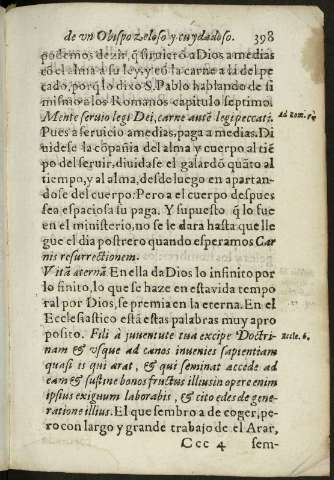 de vn Obispo zeloso y cuydadoso. 398
podemos dezir, q̃ siruierō a Dios a medias
cō el alma a su ley, y cō la carne a la del pe
cado, por q̃ lo dixo S. Pablo hablando de si
mismo a los Romanos capitulo septimo.
Mente seruio legi Dei, carne autẽ legi peccati. Ad Rom.
Pues a seruicio a medias, paga a medias. Di
uidese la cōpañia del alma y cuerpo al tiẽ
po del seruir, diuidase el galardō quãto al
tiempo, y al alma, desde luego en apartan-
dose del cuerpo: Pero a el cuerpo despues
sea espaciosa su paga. Y supuesto q̃ lo fue
en el ministerio, no se le dara hasta que lle
gue el dia postrero quando esperamos Car
nis resurrectionem.
Vitã aternã. En ella da Dios lo infinito por
lo finito, lo que se haze en esta vida tempo
ral por Dios, se premia en la eterna. En el
Ecclesiastico está estas palabras muy apro
posito. Fili à iuuentute tua excipe Doctri- Eccle. 6.
nam & vsque ad canos inuenies sapientiam
quasi is qui arat, & qui seminat accede ad
eam & sustine bonos fructus illius in opere enim
ipsius exiguum laborabis, & cito edes de gene-
ratione illius. El que sembro a de coger, pe-
ro con largo y grande trabajo de el Arar,
Ccc 4 sem-